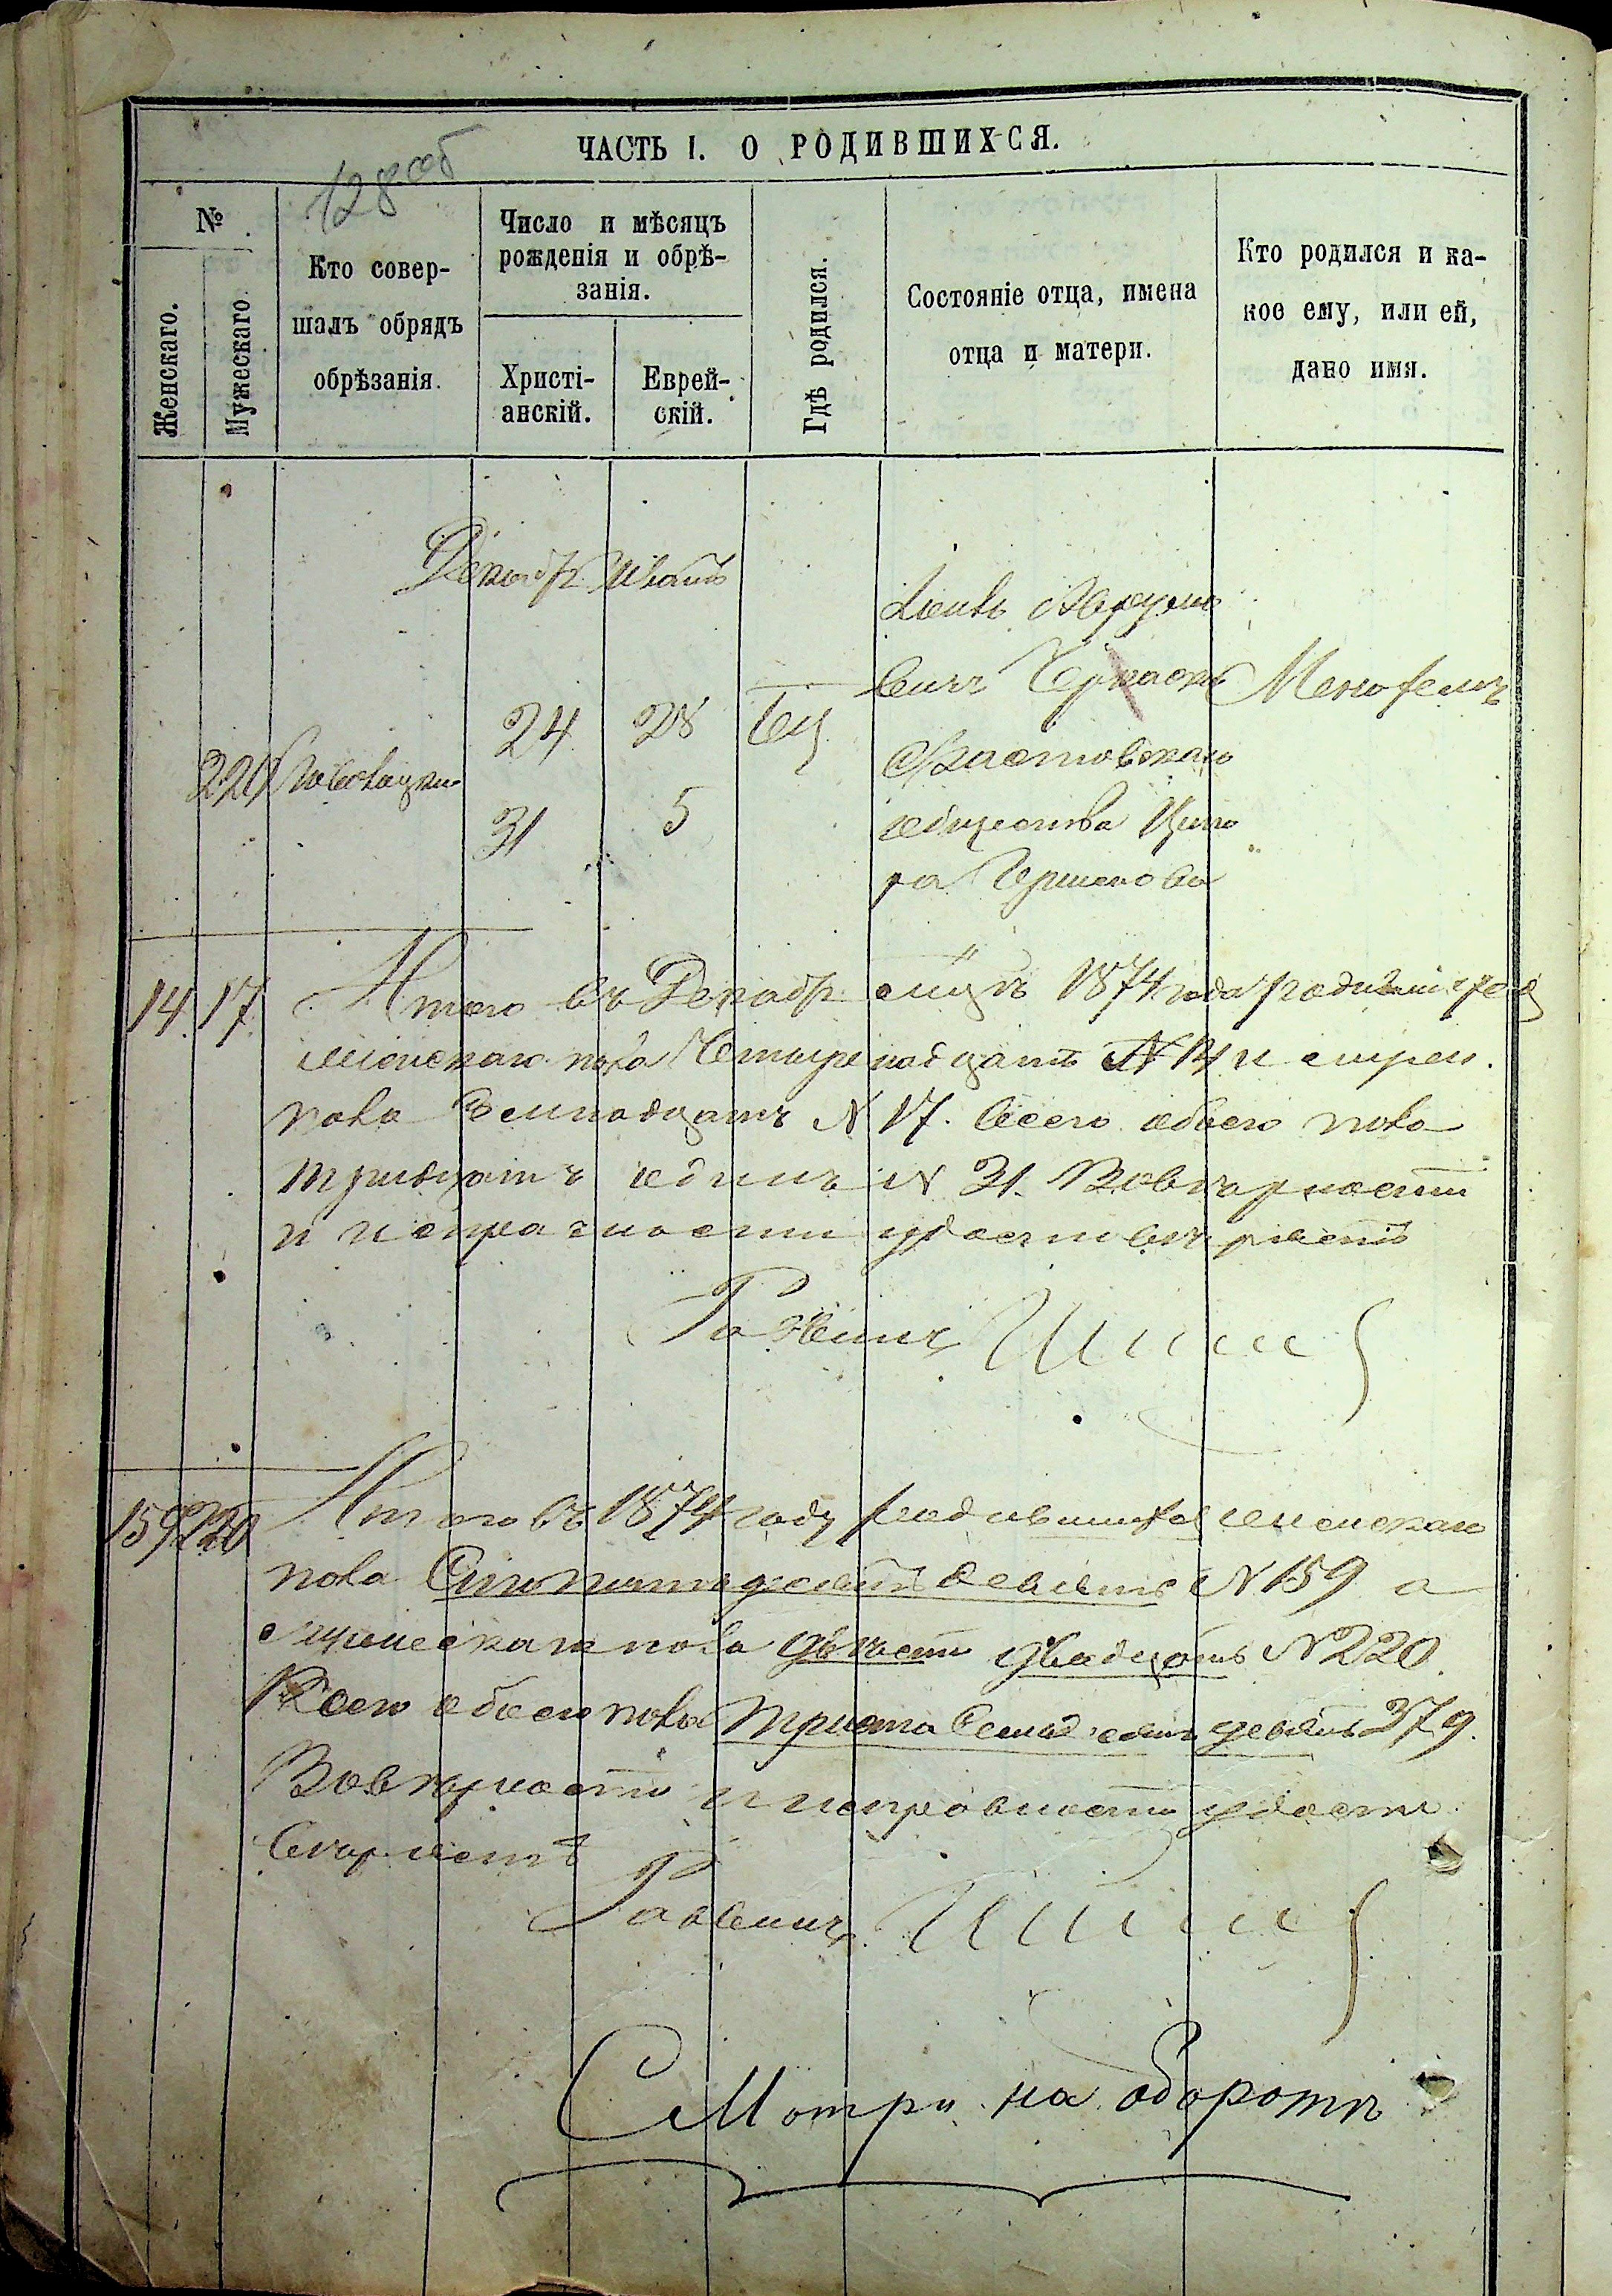 128 об
ЧАСТЬ I. О РОДИВШИХСЯ.
№
Женскаго.
Мужескаго
Кто совер-
шалъ обрядъ
обрѣзанія.
Число и мѣсяцъ
рожденія и обрѣ-
занія.
Христі-
анскій.
Еврей-
скій.
Гдѣ родился.
Состояніе отца, имена
отца и матери.
Кто родился и ка-
кое ему, или ей,
дано имя.
Декабр.
Аврумо
вичъ
24 28 Бц
220
31 5
общества
ра Гершкова
14 17 Итого въ Декабр мцѣ 1874 года родившихся
женскаго пола Четыренадцать N 14 и мужес.
пола Семнадцать N 17. Всего обоего пола
тридцать одинъ N 31. Въ вѣрности
и исправности удостовѣряетъ
Раввинъ
159 220 Итого въ 1874 году родившихся женскаго
пола Стопятьдесятъ девять N 159 а
мужескаго пола двѣсти двадцать N 220.
Всего обоего пола Триста Семдесятъ девять 379.
Въ вѣрности и исправности удосто
вѣряетъ
Раввинъ
Смотри на оборотѣ